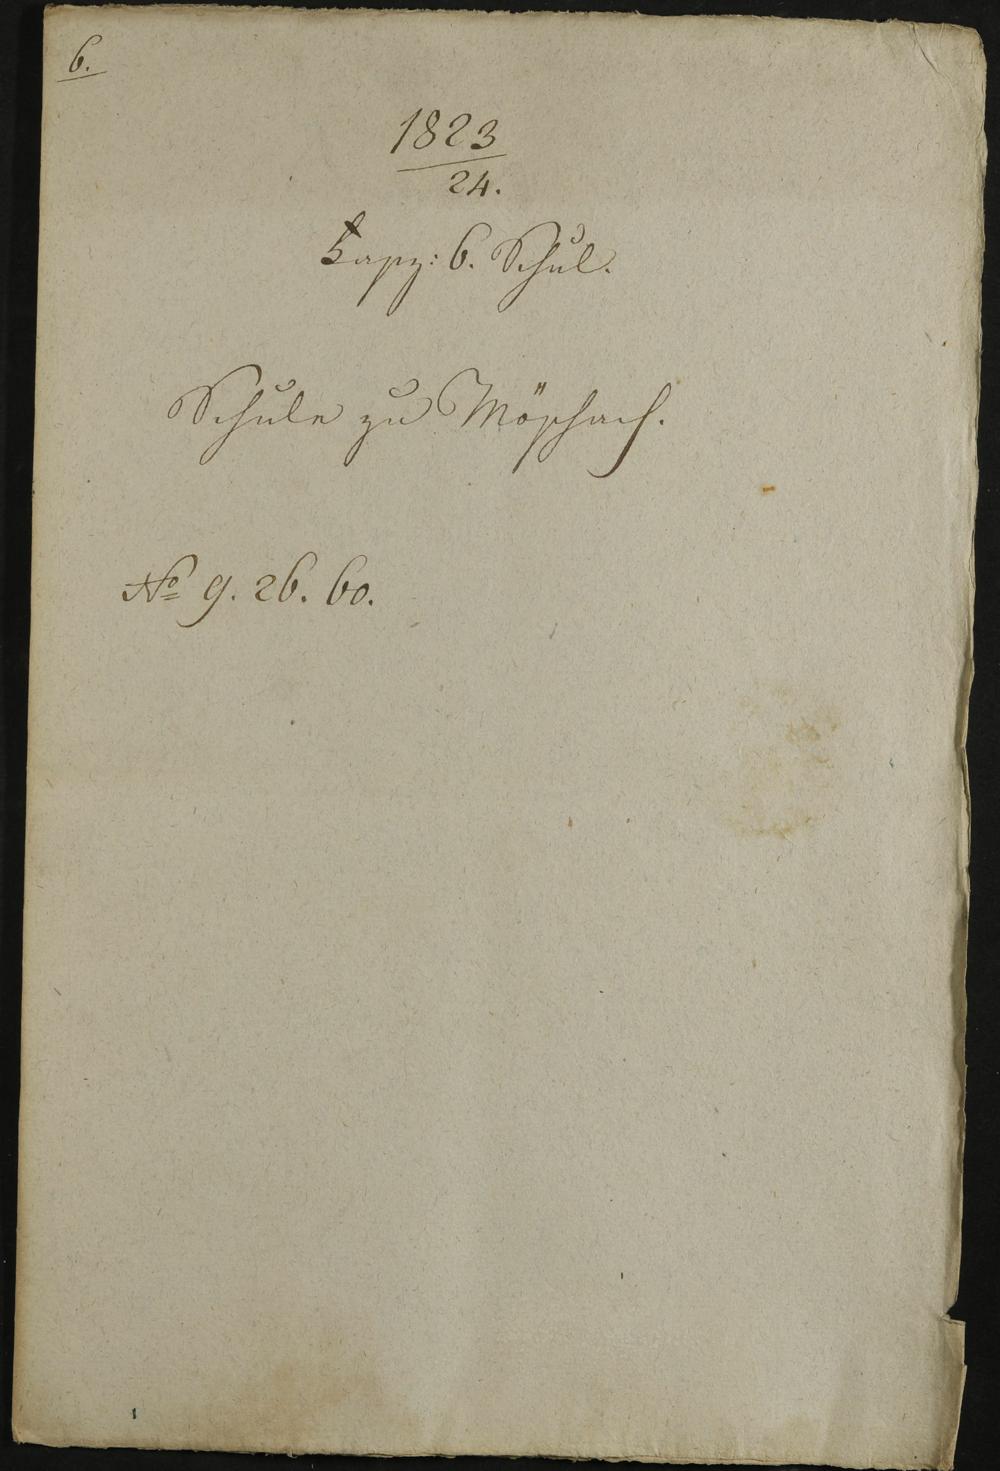 6.
1823
24.
Fasz: 6. Schul.
Schule zu Möschach.
No 9. 26. 60.